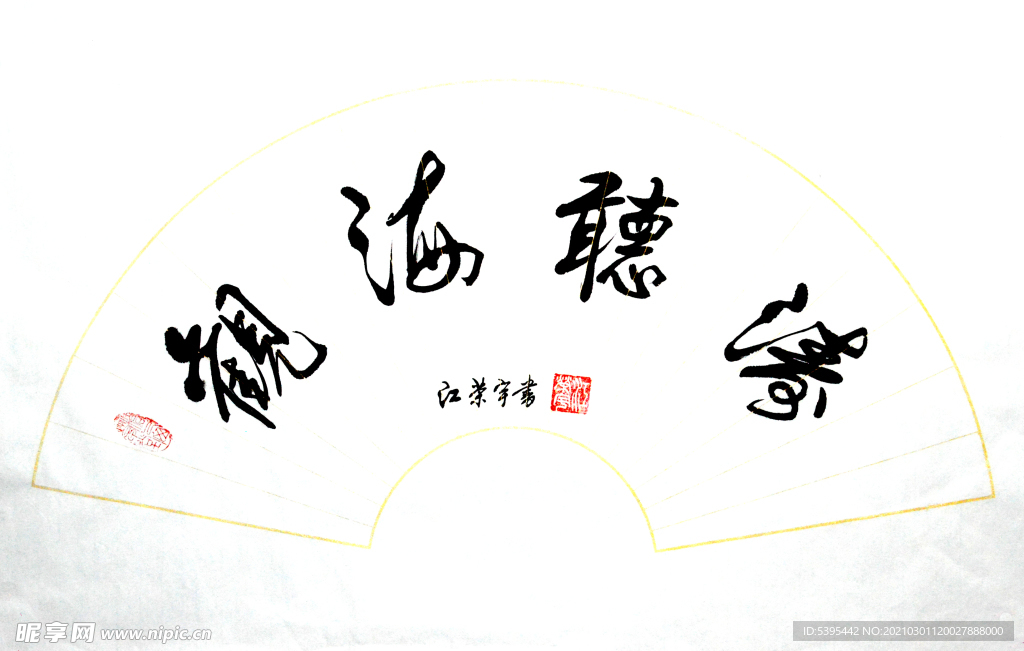 觀海聽濤
江榮宇書
昵享网 www.nipic.cn
ID:5395442 NO:20210301120027888000